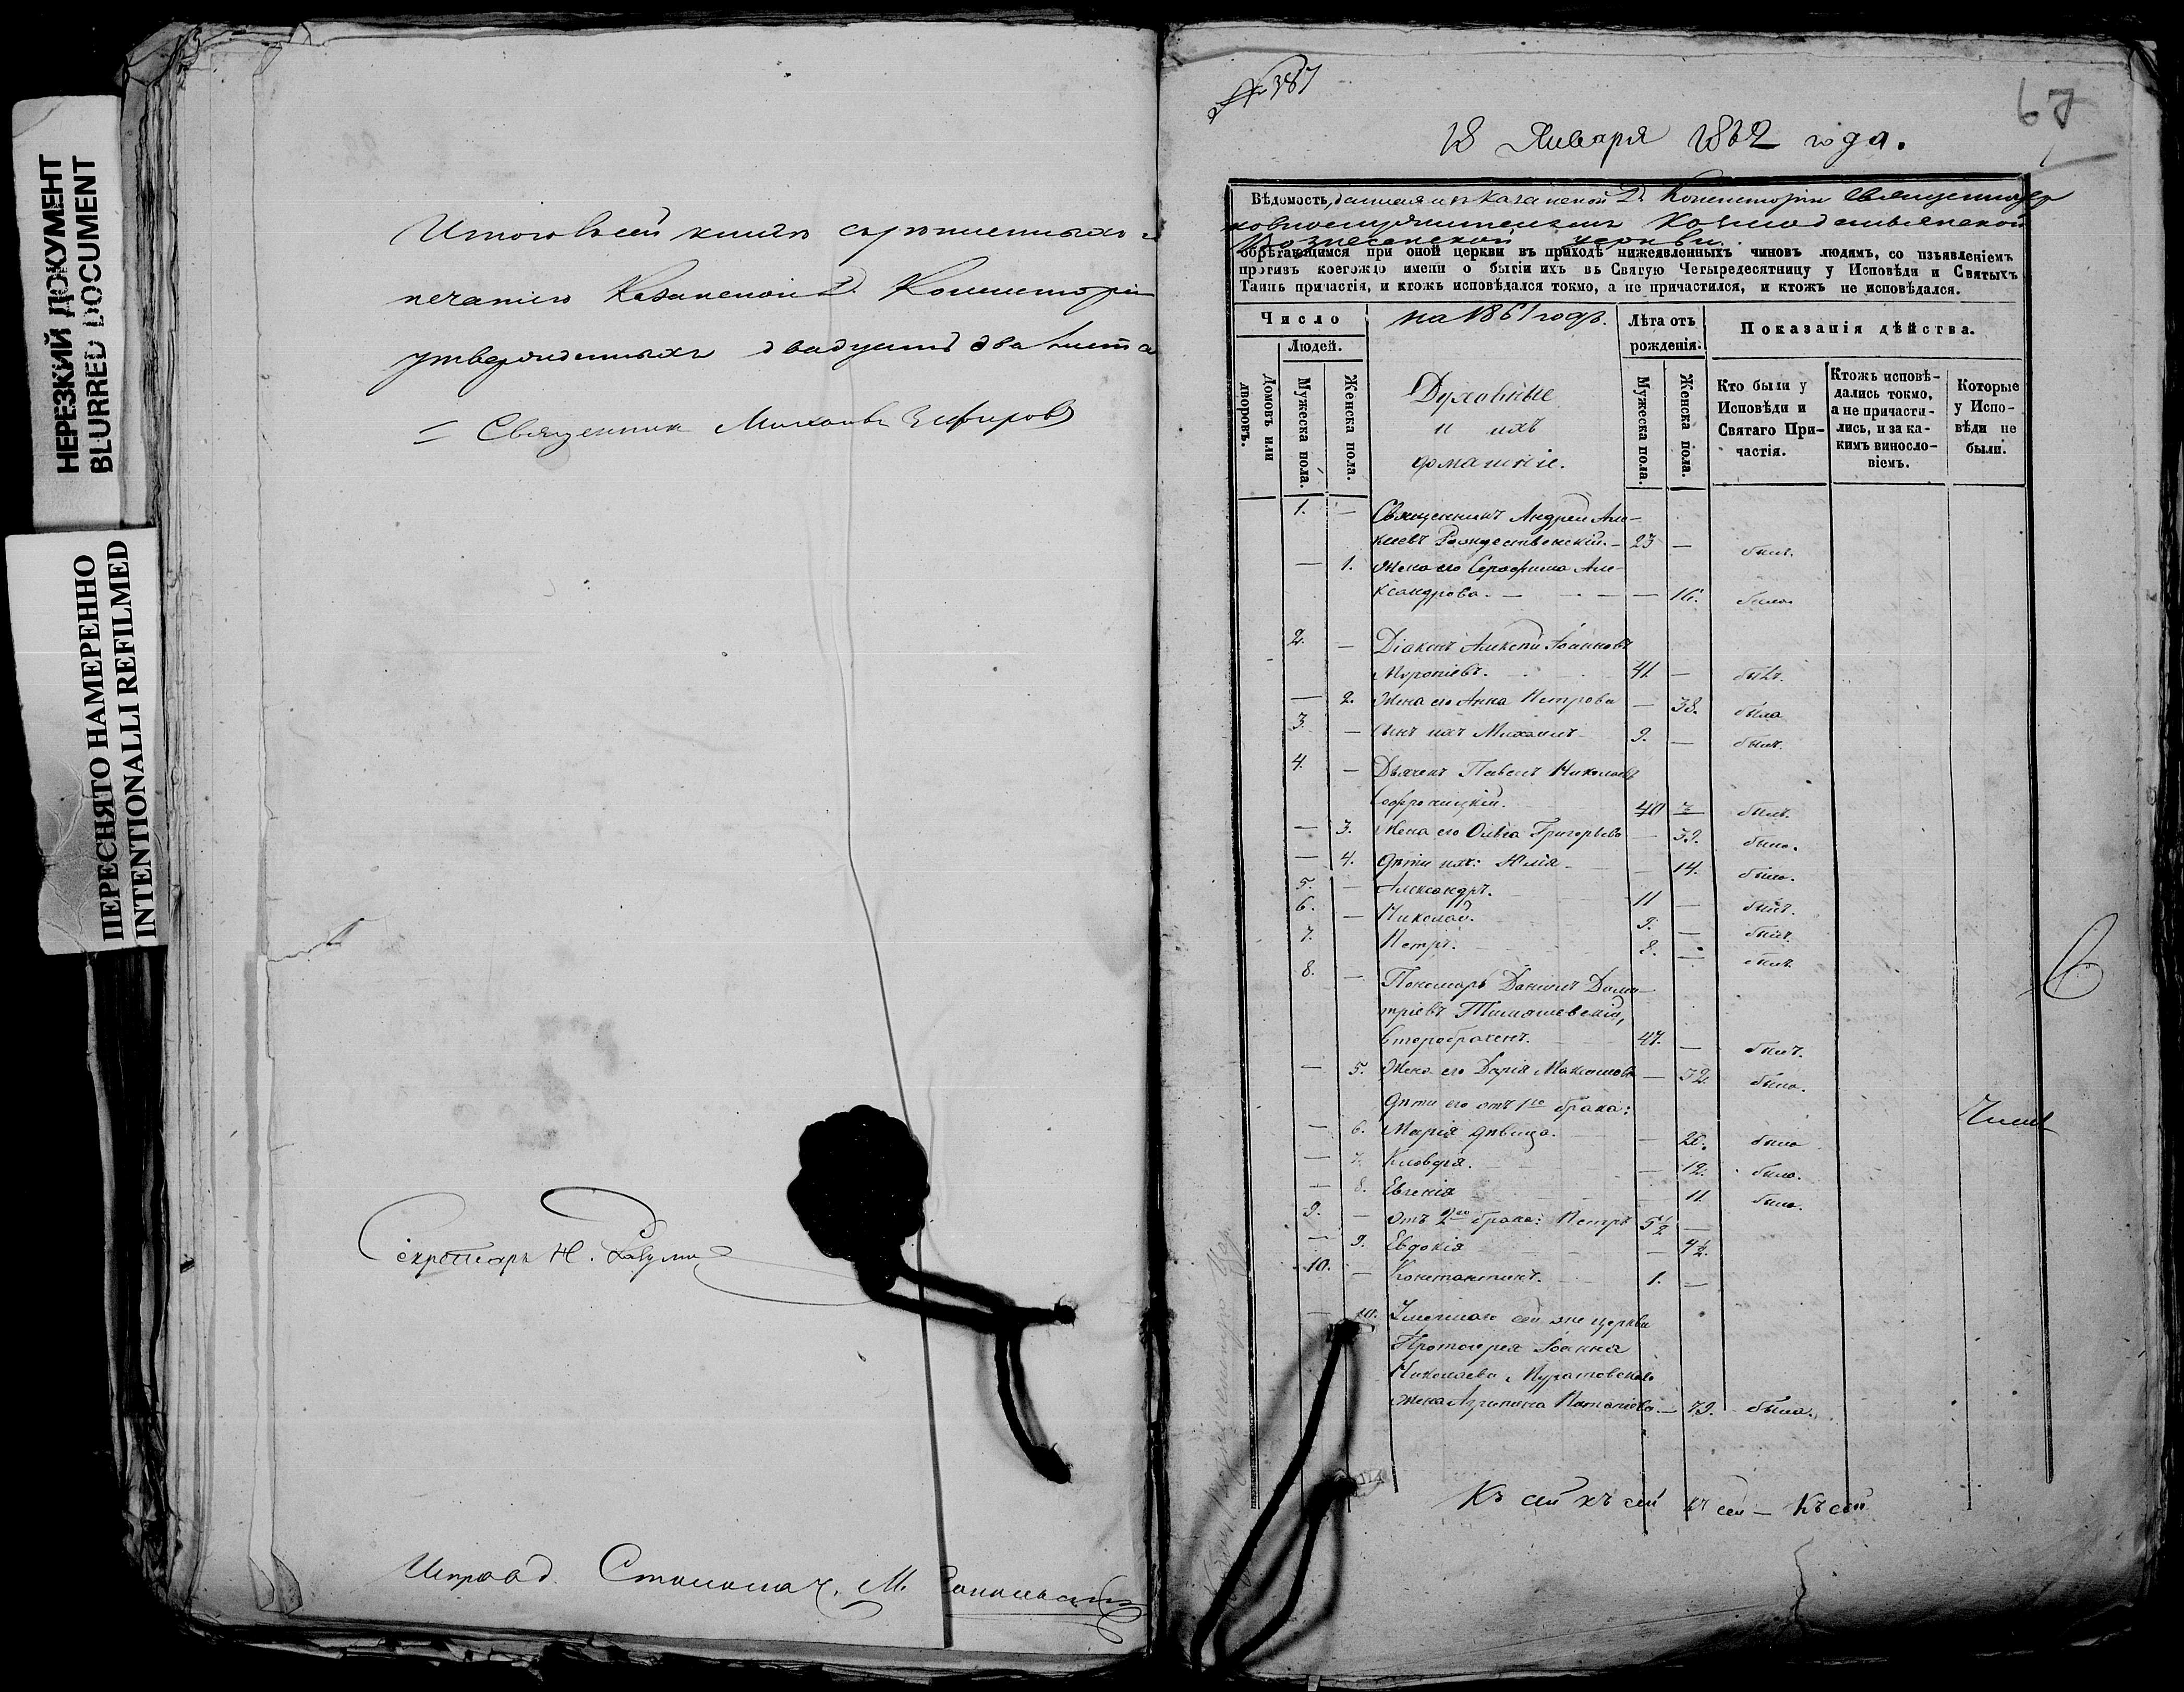 НЕРЕЗКИЙ ДОКУМЕНТ
BLURRED DOCUMENT
ПЕРЕСНЯТО НАМЕРЕННО
INTENTIONALLI REFILMED
Итого въ сей книгѣ скрѣпленныхъ и
печатію Казанской Д. Консисторіи
утвержденныхъ двадцать два листа
Священникъ Михаилъ Зефировъ
Секретарь Н.
Исправ. д. Столонач. М.
№ 387
67
18 Января 1862 года.
Вѣдомость, данная изъ Казанской Д. Консисторіи Священно-цер
ковнослужителямъ Козмодемьянской
Вознесенской церкви
обрѣтающимся при оной церкви въ приходѣ нижеявленныхъ чиновъ людямъ, со изъявленіемъ
противъ коегождо имени о бытіи ихъ въ Святую Четыредесятницу у Исповѣди и Святыхъ
Таинъ причастія, и ктожъ исповѣдался токмо, а не причастился, и ктожъ не исповѣдался.
Число
Людей.
Домовъ или дворовъ.
Мужеска пола.
Женска пола.
на 1861 годъ.
Духовные
и ихъ
домашніе.
Лѣта отъ рожденія.
Мужеска пола.
Женска пола.
Показанія дѣйства.
Кто были у Исповѣди и Святаго Причастія.
Ктожъ исповѣдались токмо, а не причастились, и за какимъ винословіемъ.
Которые у Исповѣди не были.
1. — Священникъ Андрей Але-
ксіевъ Рождественскій. — 23 — былъ.
— 1. Жена его Серафима Але-
ксандрова. — — 16. была.
2. — Діаконъ Алексій Іоанновъ
41 — былъ.
— 2. Жена его Анна Петрова — 38. была
3. — Сынъ ихъ Михаилъ 9. — былъ.
4. — Дьячекъ Павелъ Николаевъ
Софроницкій. 40 — былъ.
— 3. Жена его Ольга Григорьева — 39. была.
— 4. Дѣти ихъ: Юлія — 14. была.
5. — Александръ. 11 — былъ.
6. — Николай. 9. — былъ.
7. Петръ. 8. — былъ.
8. — Пономарь Даніилъ Дими-
тріевъ
второбрачент. 47. — былъ.
— 5. Жена его Дарія Максимова — 32. была.
Дѣти его отъ 1го брака:
— 6. Марія дѣвица. — 20. была
— 7. Клавдія. — 12. была.
— 8. Евгенія — 11. была.
9. — Отъ 2го брака: Петръ 5½ —
— 9. Евдокія — 4½.
10. — Константинъ. 1. —
— 10. Умершаго сей же церкви
Протоіерея Іоанна
Николаева
жена Агрипина — 79. была.
Къ сей къ сей къ сей — Къ сей